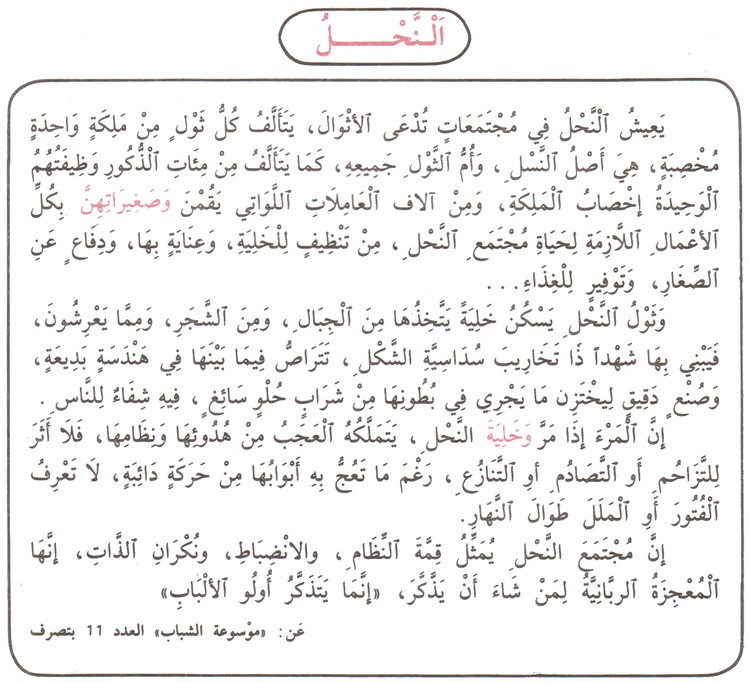 اَلْـنَّـحْـــــلُ
يَعِيشُ ٱلْنَّحْلُ فِي مُجْتَمَعَاتٍ تُدْعَى ٱلأَثْوَالَ، يَتَأَلَّفُ كُلُّ ثَوْلٍ مِنْ مَلِكَةٍ وَاحِدَةٍ
مُخْصِبَةٍ، هِيَ أَصْلُ ٱلنَّسْلِ، وَأُمُّ ٱلثَّوْلِ جَمِيعِهِ، كَمَا يَتَأَلَّفُ مِنْ مِئَاتِ ٱلْذُّكُورِ وَظِيفَتُهُمُ
ٱلْوَحِيدَةُ إِخْصَابُ ٱلْمَلِكَةِ، وَمِنْ آلاف ٱلْعَامِلَاتِ ٱللَّوَاتِي يَقُمْنَ وَصَغِيرَاتِهِنَّ بِكُلِّ
ٱلأَعْمَالِ ٱللاَّزِمَةِ لِحَيَاةِ مُجْتَمَعِ ٱلنَّحْلِ، مِنْ تَنْظِيفٍ لِلْخَلِيَةِ، وَعِنَايَةٍ بِهَا، وَدِفَاعٍ عَنِ
ٱلصِّغَارِ، وَتَوْفِيرٍ لِلْغِذَاءِ...
وَثَوْلُ ٱلنَّحْلِ يَسْكُنُ خَلِيَةً يَتَّخِذُهَا مِنَ ٱلْجِبَالِ، وَمِنَ ٱلشَّجَرِ، وَمِمَّا يَعْرِشُونَ،
فَيَبْنِي بِهَا شَهْداً ذَا تَخَارِيبَ سُدَاسِيَّةِ ٱلشَّكْلِ، تَتَرَاصُّ فِيمَا بَيْنَهَا فِي هَنْدَسَةٍ بَدِيعَةٍ،
وَصُنْعٍ دَقِيقٍ لِيخْتَزِن مَا يَجْرِي فِي بُطُونِهَا مِنْ شَرَابٍ حُلْوٍ سَائِغٍ، فِيهِ شِفَاءٌ لِلنَّاسِ.
إِنَّ ٱلْمَرْءَ إِذَا مَرَّ وَخَلِيَةَ النَّحْلِ، يَتَمَلَّكُهُ ٱلْعَجَبُ مِنْ هُدُوئِهَا وَنِظَامِهَا، فَلَا أَثَرَ
لِلتَّزَاحُمِ أَوِ ٱلتَّصَادُمِ أَوِ ٱلتَّنَازُعِ، رَغْمَ مَا تَعُجُّ بِهِ أَبْوَابُهَا مِنْ حَرَكَةٍ دَائِبَةٍ، لَا تَعْرِفُ
ٱلْفُتُورَ أَوِ ٱلْمَلَلَ طَوَالَ ٱلنَّهَارِ.
إِنَّ مُجْتَمَعَ النَّحْلِ يُمَثِّلُ قِمَّةَ ٱلنِّظَامِ، والانْضِبَاطِ، ونُكْرَانِ ٱلذَّاتِ، إِنَّهَا
ٱلْمُعْجِزَةُ ٱلربَّانِيَّةُ لِمَنْ شَاءَ أَنْ يَذَّكَّرَ، «إِنَّمَا يَتَذَكَّرُ أُولُو ٱلأَلْبَابِ»
عَن: «موْسوعة الشباب» العدد 11 بتصرف